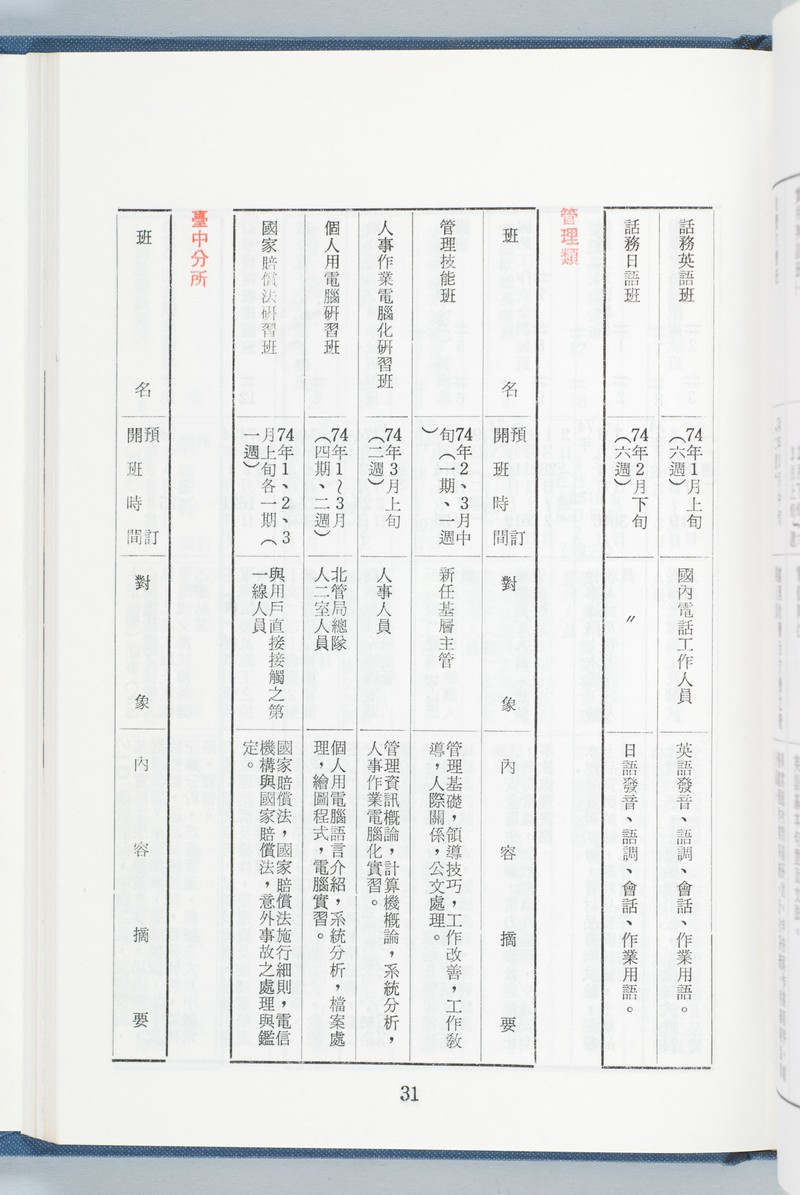 話務英語班
74年1月上旬
(六週)
國內電話工作人員
英語發音、語調、會話、作業用語。
話務日語班
74年2月下旬
(六週)
〃
日語發音、語調、會話、作業用語。
管理類
班名
預訂
開班時間
對象
內容摘要
管理技能班
74年2、3月中
旬(一期、一週
)
新任基層主管
管理基礎,領導技巧,工作改善,工作教
導,人際關係,公文處理。
人事作業電腦化研習班
74年3月上旬
(二週)
人事人員
管理資訊概論,計算機概論,系統分析,
人事作業電腦化實習。
個人用電腦研習班
74年1~3月
(四期、二週)
北管局總隊
人二室人員
個人用電腦語言介紹,系統分析,檔案處
理,繪圖程式,電腦實習。
國家賠償法研習班
74年1、2、3
月上旬各一期(
一週)
與用戶直接接觸之第
一線人員
國家賠償法,國家賠償法施行細則,電信
機構與國家賠償法,意外事故之處理與鑑
定。
臺中分所
班名
預訂
開班時間
對象
內容摘要
31